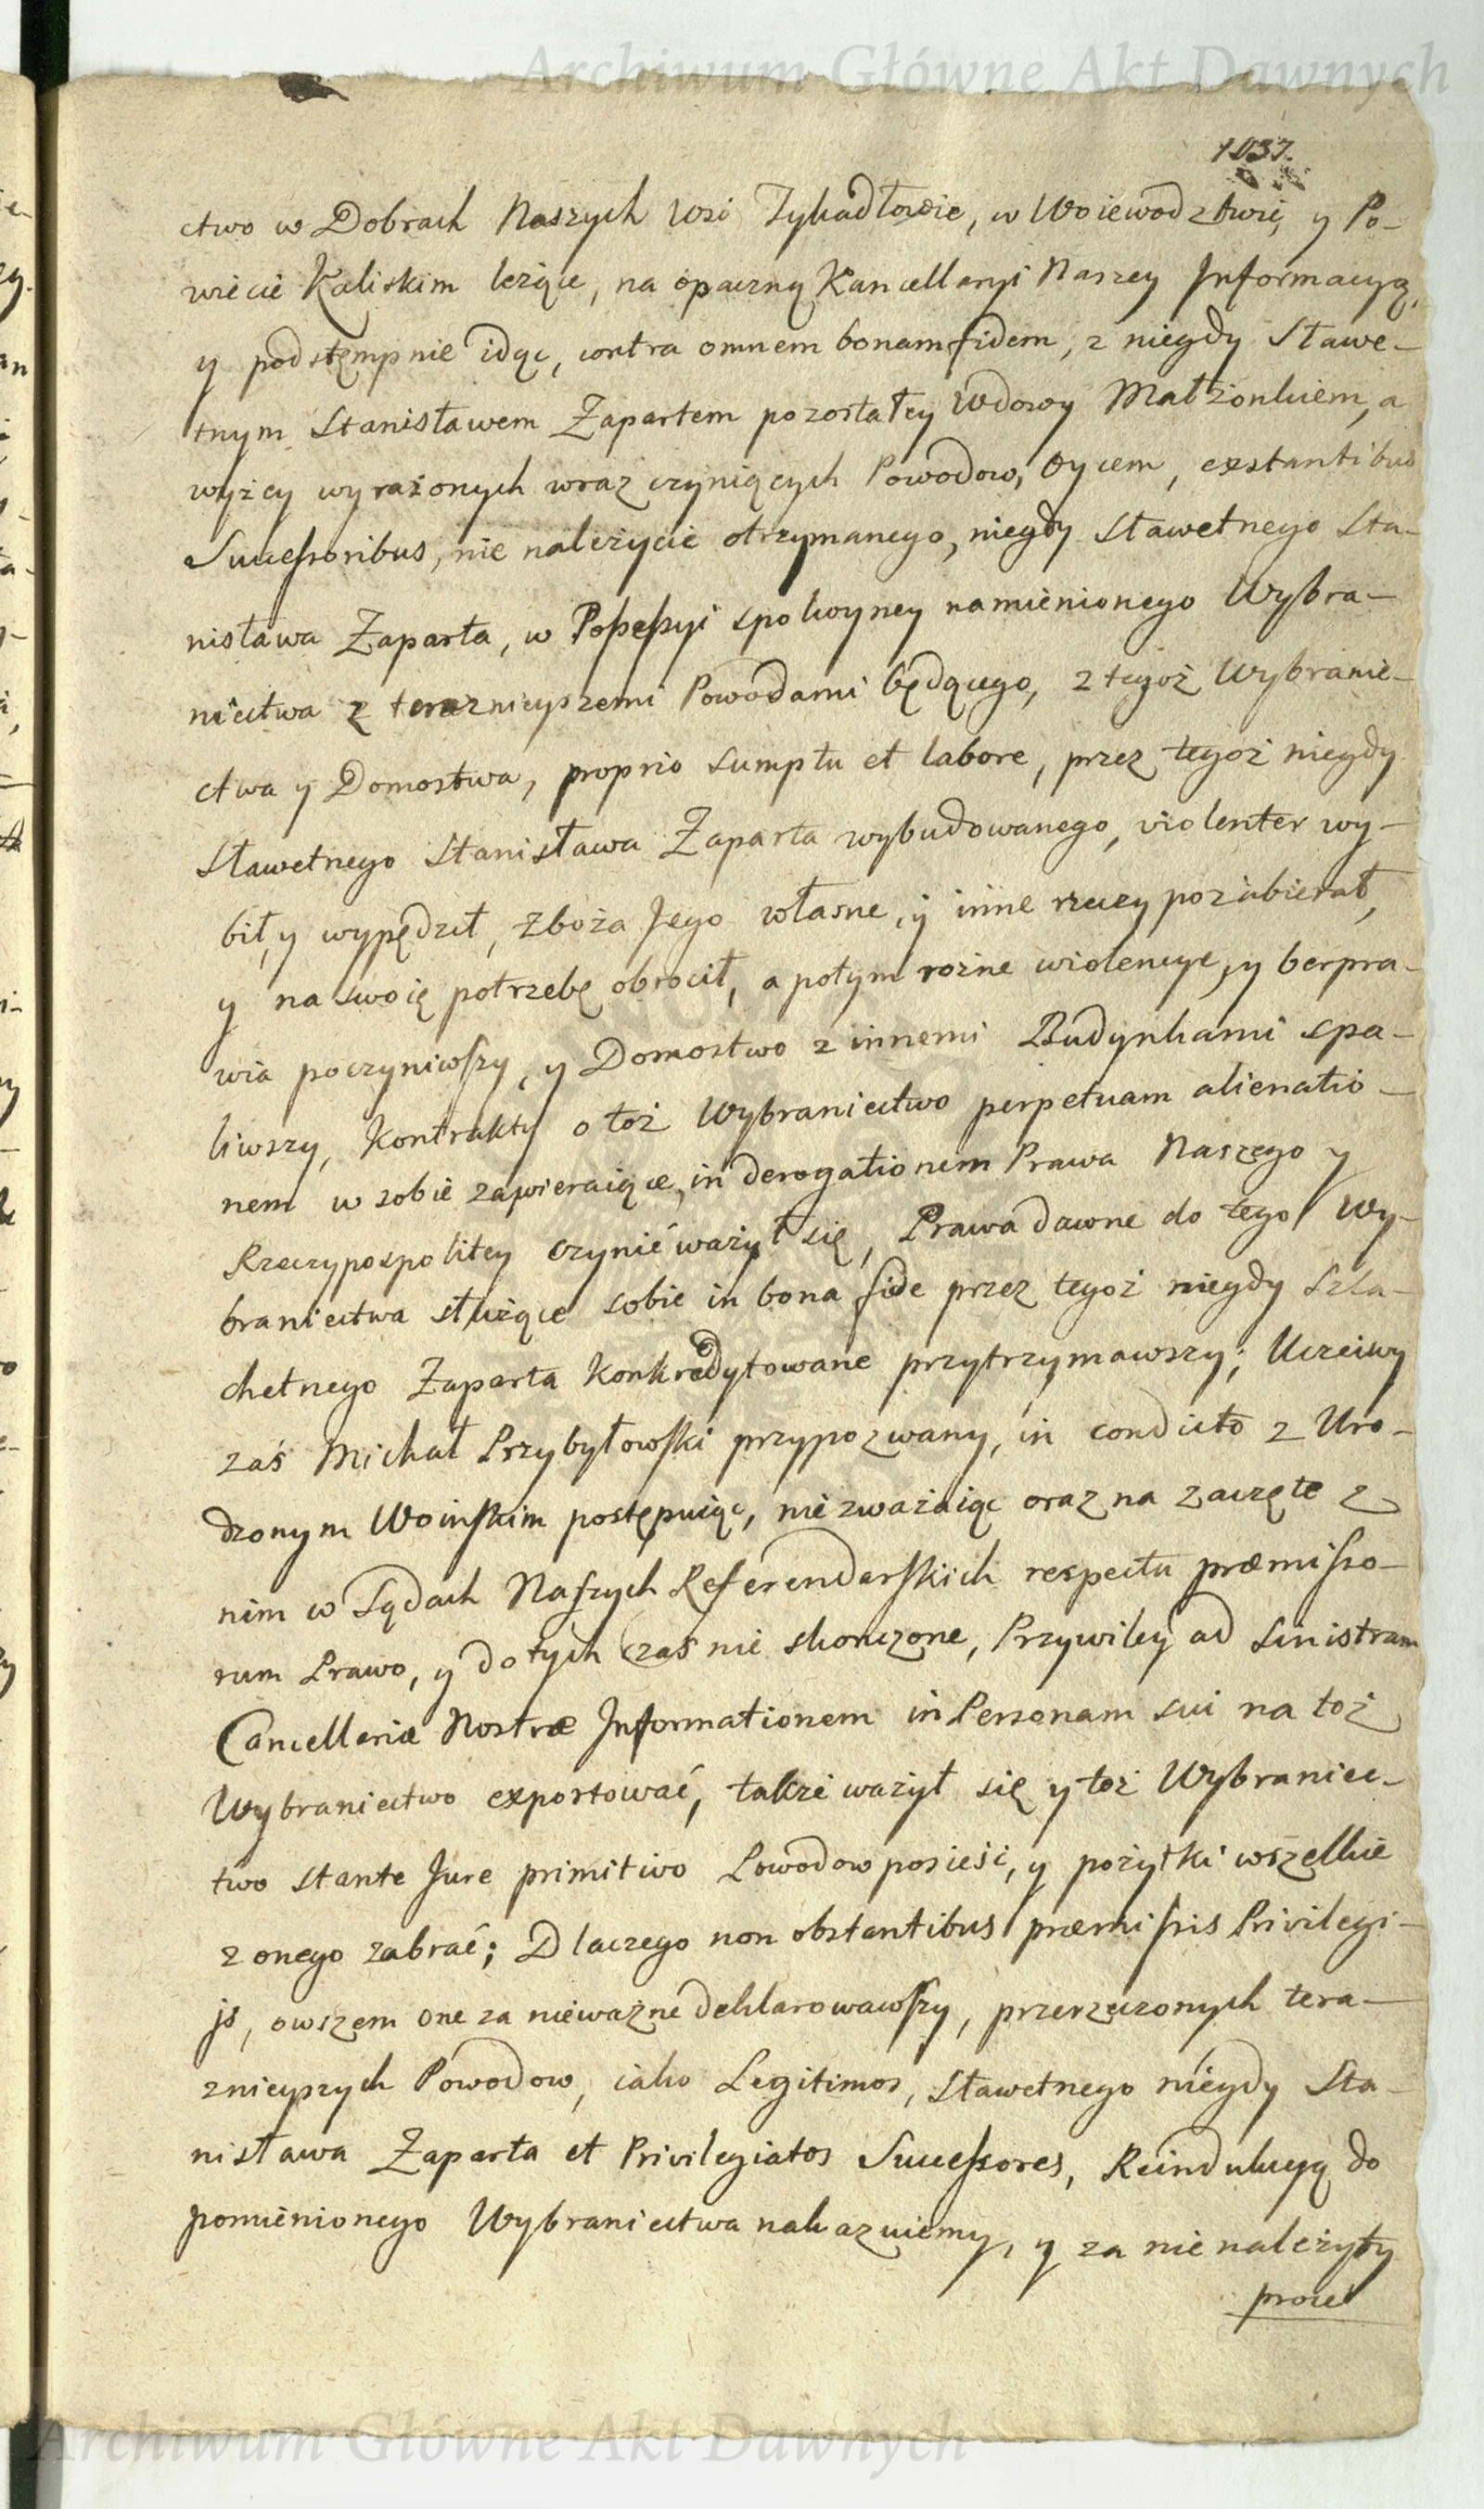 Archiwum Główne Akt Dawnych
1037.
ctwo w Dobrach Naszych Wsi Tykadłowie, w Woiewodztwie, y Po-
wiecie Kaliskim leżące, na opaczną Kancellaryi Naszey Informacyą,
y podstępnie idąc, contra omnem bonam fidem, z niegdy Sławe-
tnym Stanisławem Zapartem pozostałey Wdowy Małżonkiem, a
wyżey wyrażonych wraz czyniących Powodow, Oycem, exstantibus
Successoribus, nie należycie otrzymanego, niegdy Sławetnego Sta-
nisława Zaparta, w Possessyi spokoyney namienionego Wybra-
niectwa z teraznieyszemi Powodami będącego, z tegoż Wybranie-
ctwa y Domostwa, proprio sumptu et labore, przez tegoż niegdy
Sławetnego Stanisława Zaparta wybudowanego, violenter wy-
bił, y wypędził, zboża Jego własne, y inne rzeczy pozabierał,
y na swoię potrzebę obrocił, a potym rożne wiolencye, y bezpra-
wia poczyniwszy, y Domostwo z innemi Budynkami spa-
liwszy, Kontrakty o toż Wybraniectwo perpetuam alienatio-
nem w sobie zawieraiące, in derogationem Prawa Naszego y
Rzeczypospolitey czynić ważył się, Prawa dawne do tego Wy-
braniectwa służące sobie in bona fide przez tegoż niegdy Szla-
chetnego Zaparta Konkredytowane przytrzymawszy; Uczciwy
zaś Michał Przybyłowski przypozwany, in condicto z Uro-
dzonym Woinskim postępuiąc, nie zważaiąc oraz na zaczęte z
nim w Sądach Naszych Referendarskich respectu præmisso-
rum Prawo, y do tych czas nie skonczone, Przywiley ad sinistram
Cancellariæ Nostræ Informationem in Personam sui na toż
Wybraniectwo exportować, także ważył się y toż Wybraniec-
two stante Jure primitivo Powodow posieść, y pożytki wszelkie
z onego zabrać; Dlaczego non obstantibus præmissis Privilegi-
js, owszem one za nieważne deklarowawszy, przerzeczonych tera-
znieyszych Powodow, iako Legitimos, Sławetnego niegdy Sta-
nisława Zaparta et Privilegiatos Successores, Reindukcyą do
pomienionego Wybraniectwa nakazuiemy, y za nienależyty
proce
Archiwum Główne Akt Dawnych